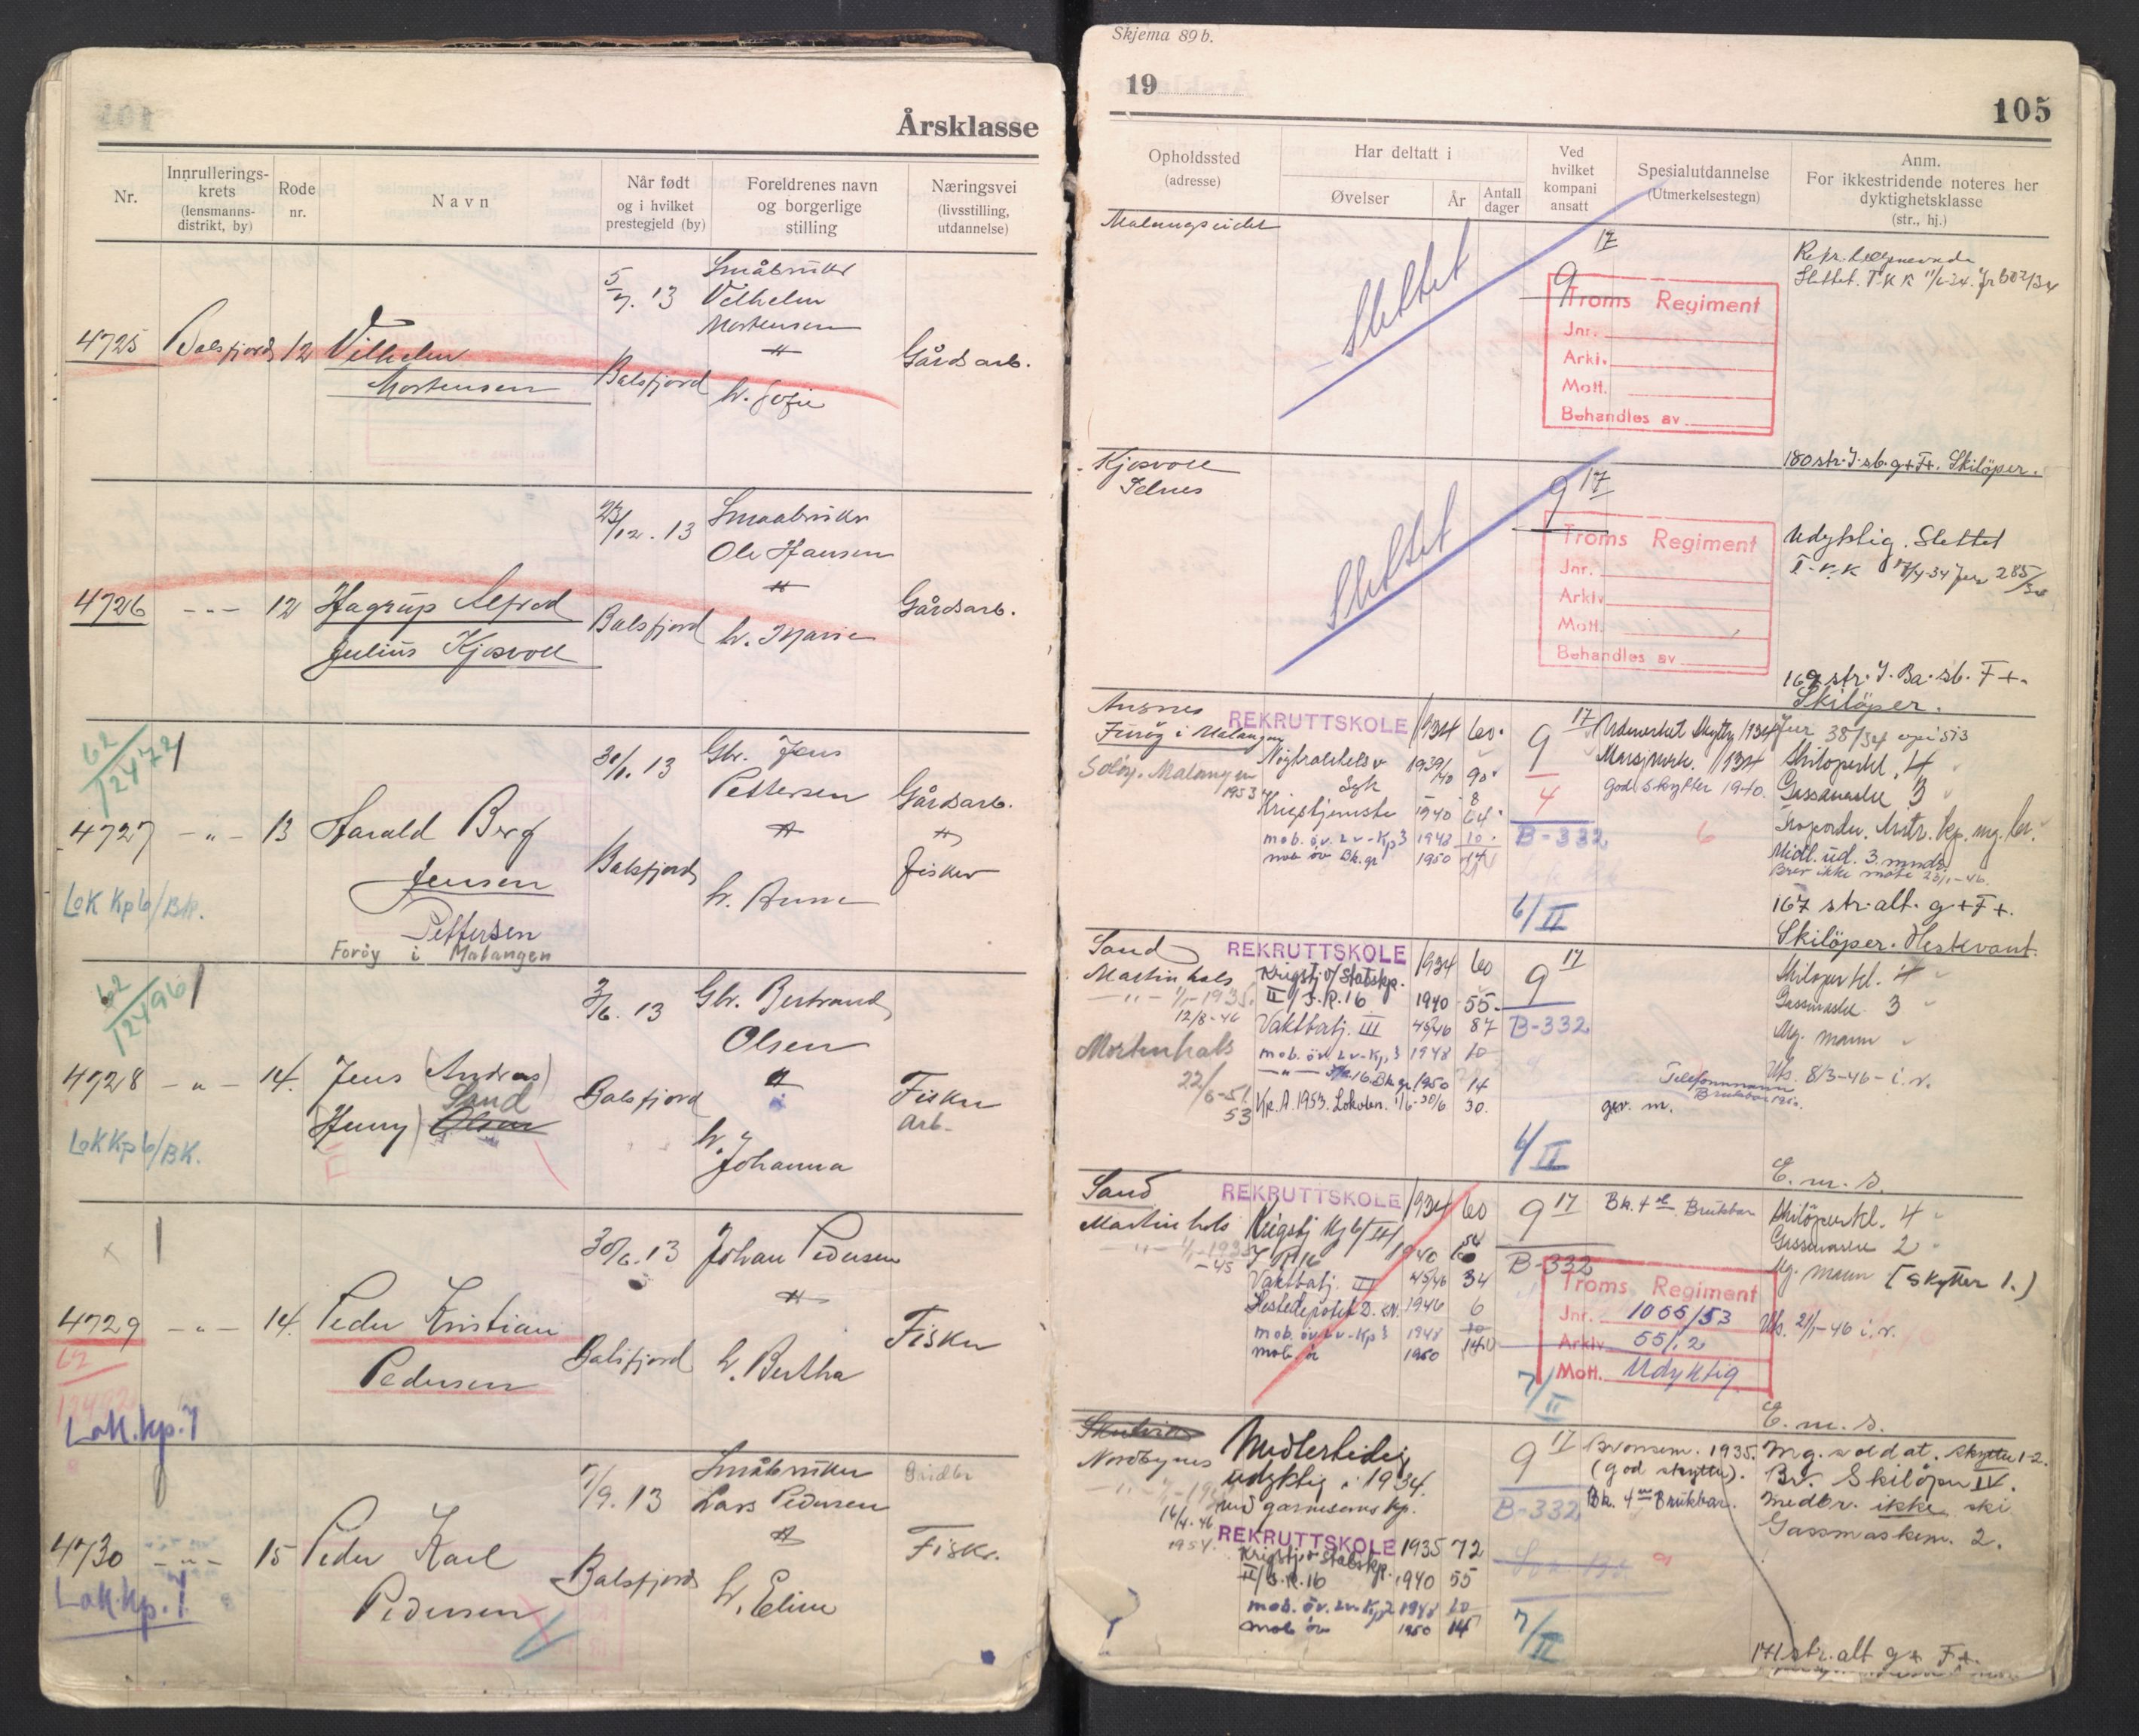 Årsklasse
Nr.
Innrullerings-
krets
(lensmanns-
distrikt, by)
Rode
nr.
Navn
Når født
og i hvilket
prestegjeld (by)
Foreldrenes navn
og borgerlige
stilling
Næringsvei
(livsstilling,
utdannelse)
4725 Balsfjord 12 Vilhelm
Mortensen
5/7. 13
Balsfjord
Småbruker
Vilhelm
Mortensen
h. Sofie
Gårdsarb.
4726 -"- 12 Hagrup Alfred
Julius Kjosvoll
23/12. 13
Balsfjord
Smaabruker
Ole Hansen
h. Marie
Gårdsarb.
62
12472
4727 -"- 13 Harald Berg
Jensen
Pettersen
Forøy i Malangen
Lok Kp 6/BK.
30/1. 13
Balsfjord
Gbr. Jens
Pettersen
h. Anna
Gårdsarb.
Fisker
62
12496
4728 -"- 14. Jens (Andreas)
Sand
(Henry) Olsen
Lok Kp 6/BK.
3/6. 13
Balsfjord
Gbr. Bertrand
Olsen
h. Johanna
Fisker
arb.
4729 -"- 14. Peder Kristian
Pedersen
62
12492
Lok.kp.7
30/6. 13
Balsfjord
Johan Pedersen
h. Bertha
Fisker
4730 -"- 15 Peder Karl
Pedersen
Lok.kp.7
7/9. 13
Balsfjord
Småbruker
Lars Pedersen
h. Eline
Fisker.
Skjema 89 b.
19
105
Opholdssted
(adresse)
Har deltatt i
Øvelser
År
Antall
dager
Ved
hvilket
kompani
ansatt
Spesialutdannelse
(Utmerkelsestegn)
Anm.
For ikkestridende noteres her
dyktighetsklasse
(str., hj.)
Malangseidet
Slettet
17
9
Troms Regiment
Jnr.
Arkiv.
Mott.
Behandles av
Slettet. T.K.K 11/6-34. Jr 602/34
180 str. I. sb. g+F+. Skiløper.
Kjosvoll
Selnes
Slettet
9 17
Troms Regiment
Jnr.
Arkiv
Mott.
Behandles av
Udyktig. Slettet
285/34
169 str. I. Ba. sb. F+.
Skiløper.
Ansnes
Furøy i Malangen
Soløy. Malangen
1953
REKRUTTSKOLE 1934 60.
Nøytralitetsv 1939/40 90.
Syk 8
Krigstjeneste 1940 64
mob. öv. Lv-Kp3 1948 10.
mob öv Bk. gr 1950 14
9 17
4
B-332
6/II
Marsjmerk. 1934
god skytter 1940.
6
Jnr 38/34
Skiløperkl. 4
Gassmaske 3
Midl. ud. 3. mndr.
Brev ikke møte 23/1-46.
167 str. alt. g+F+.
Skiløper. Hestevant.
Sand
Martinhals
-"- 1/1-1935.
12/8-46
Mortenhals
22/6-51
53
REKRUTTSKOLE 1934 60
Krigstj v/ Stabskp.
II/I.R. 16 1940 55.
Vaktbatj. III 45/46 87
mob. öv. Lv-Kp. 3 1948 10
-"- IR. 16 Bk gr. 1950 14
Kp. A. 1953. Lokvbn. 1/6-30/6 30.
9 17
B-332
6/II
Telefonmann
Brukbar 1950.
gev. m.
Skiløperkl. 4
Gassmaske 3
Mg. mann
Uts. 8/3-46 - i. v.
E. m. s.
Sand
Martinhals
-"- 1/1-1935
-45
REKRUTTSKOLE 1934 60
Krigstj Kp 6/II/
I.R 16 1940 54
Vaktbatj. III 45/46 34
Hestedepotet D. 1946 6
mob. öv Lv-Kp 3 1948 10
mob öv 1950 14
9 17
B-332
7/II
Bk. 4 Brukbar
Troms Regiment
Jnr. 1055/53
Arkiv 55/. 2
Mott. Udyktig
Skiløperkl. 4
Gassmaske 2
Mg. mann (skytter 1.)
Uts. 21/1-46 i. v.
E. m. s.
Nordbynes
16/4-46
1954.
Midlertidig
udyktig i 1934.
ved garnisonskp.
REKRUTTSKOLE 1935 72
Krigstj. v stabskp.
II/I.R. 16 1940 55
mob. öv. Lv. Kp 2 1948 10
mob öv 1950 14
9 17
B-332
7/II
1935.
(god skytter).
Bk. 4 Brukbar.
Mg. soldat. skytter 1-2.
Br. Skiløper IV.
medbr. ikke ski
Gassmaskem. 2.
171 str. alt g+ F+.